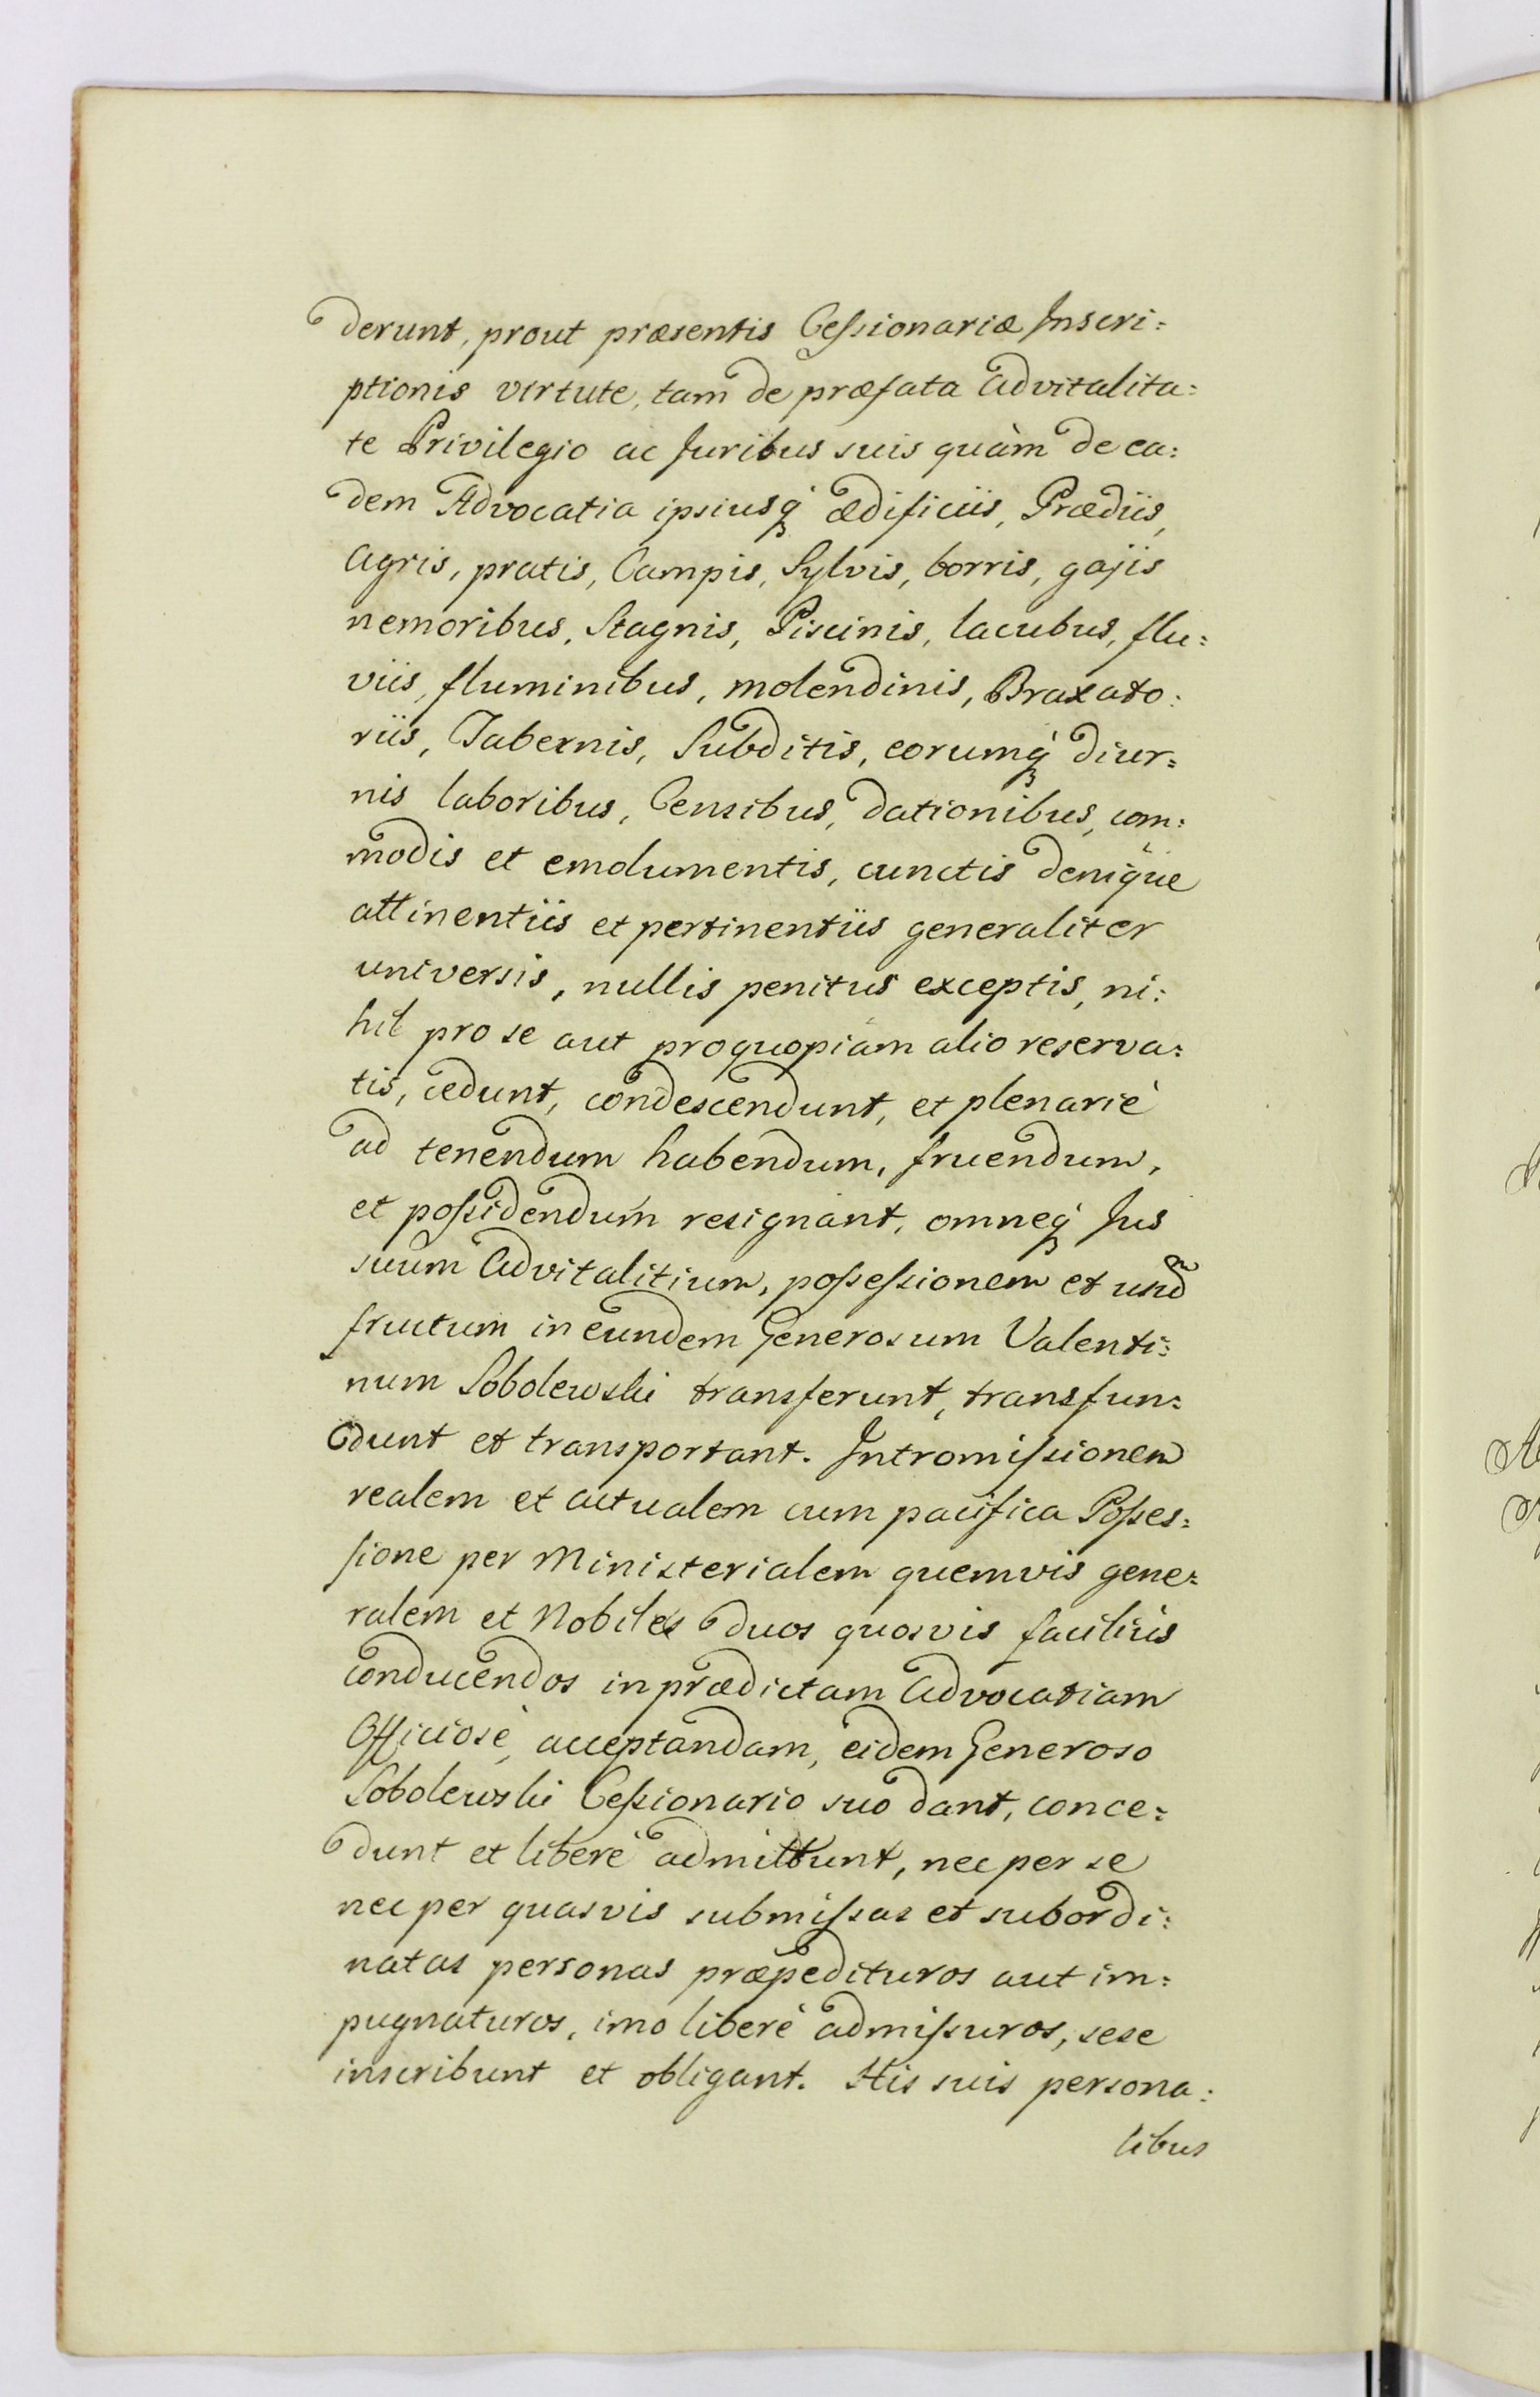 derunt, prout præsentis Cessionariæ Inscri=
ptionis virtute, tam de præfata Advitalita=
te Privilegio ac Juribus suis quàm de ea=
dem Advocatia ipsiusq́ ædificiis, Prædiis,
Agris, pratis, Campis, Sylvis, borris, gajis
nemoribus, Stagnis, Piscinis, lacubus, flu=
viis, fluminibus, molendinis, Braxato=
riis, Tabernis, Subditis, eorumq́ diur=
nis laboribus, Censibus, dationibus, com=
modis et emolumentis, cunctis denique
attinentiis et pertinentiis generaliter
universis, nullis penitus exceptis, ni=
hil pro se aut pro quopiam alio reserva=
tis, cedunt, condescendunt, et plenariè
ad tenendum habendum, fruendum,
et possidendum resignant, omneq́ Jus
suum Advitalitium, possessionem et
fructum in eundem Generosum Valenti=
num Sobolewski transferunt, transfun=
dunt et transportant. Intromissionem
realem et actualem cum pacifica Posses=
sione per Ministerialem quemvis gene=
ralem et Nobiles duos quosvis faciliùs
conducendos in prædictam Advocatiam
Officiosè, acceptandam, eidem Generoso
Sobolewski Cessionario suo dant, conce=
dunt et liberè admittunt, nec per se
nec per quasvis submissas et subordi=
natas personas præpedituros aut im=
pugnaturos, imo liberè admissuros, sese
inscribunt et obligant. His suis persona=
libus